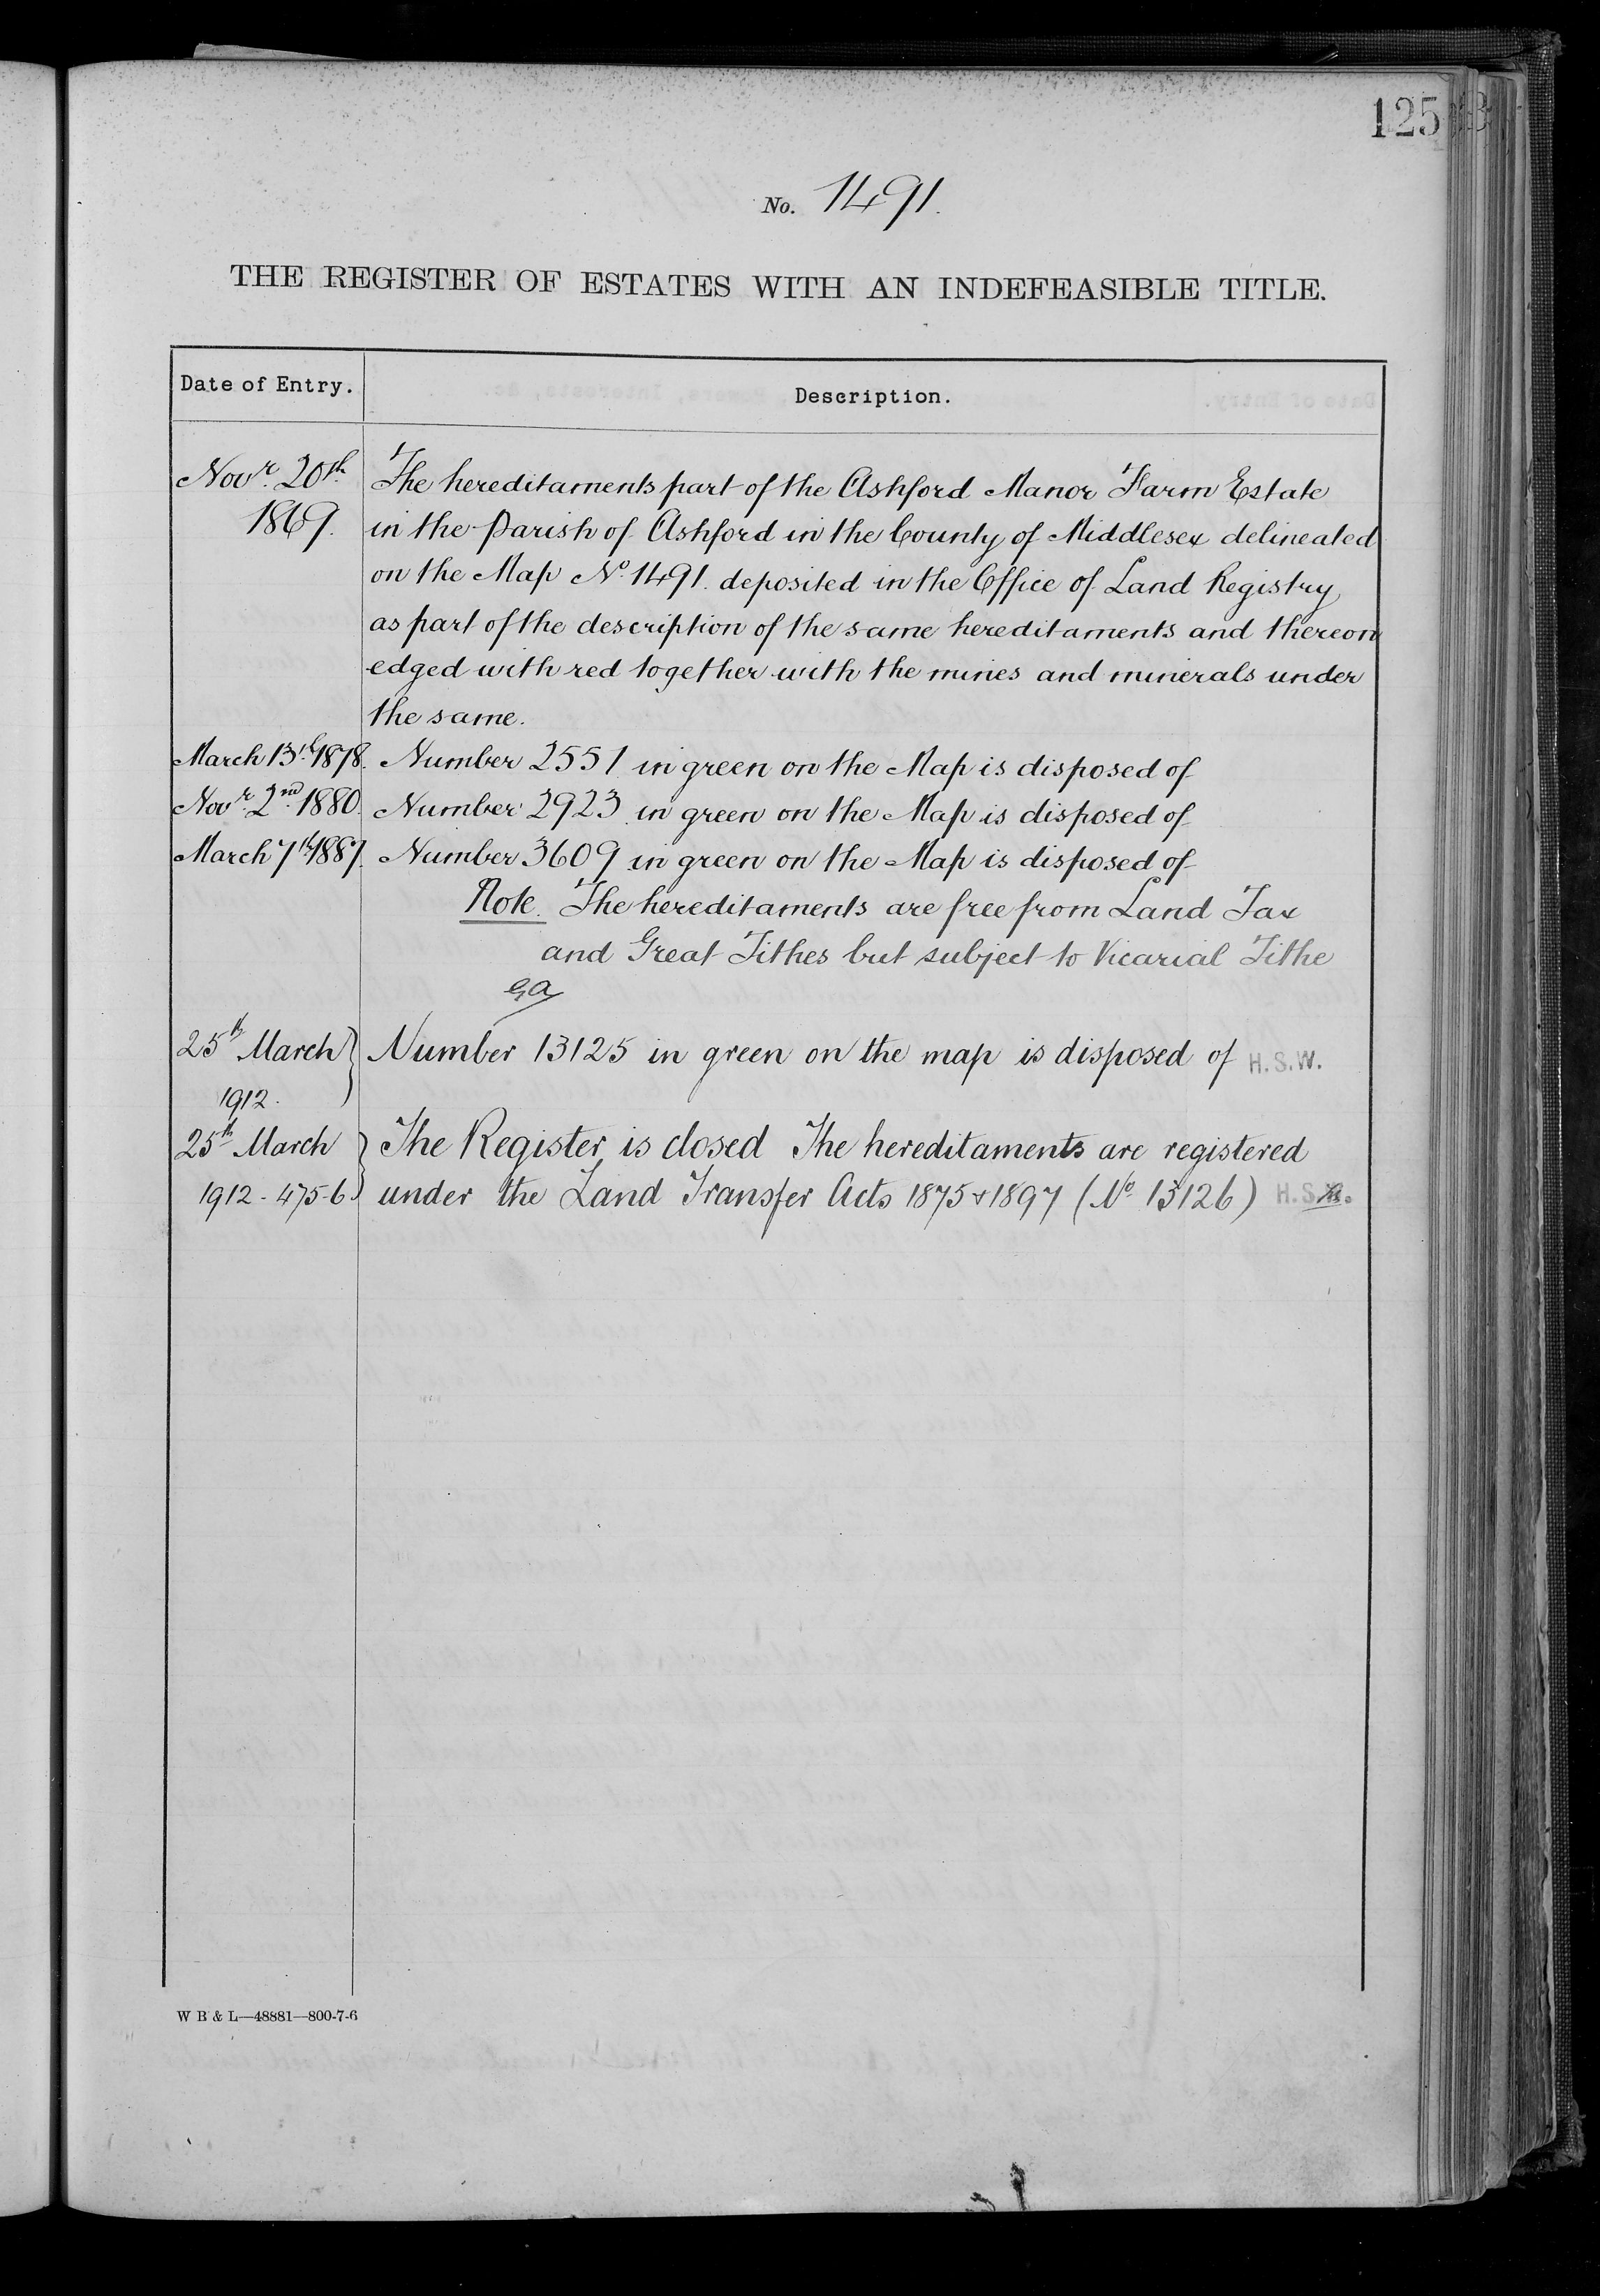 125
No. 1491.
THE REGISTER OF ESTATES WITH AN INDEFEASIBLE TITLE.
Date of Entry. Description.
Novr. 20th The hereditaments part of the Ashford Manor Farm Estate
1869. in the Parish of Ashford in the County of Middlesex delineated
on the Map No. 1491. deposited in the Office of Land Registry
as part of the description of the same hereditaments and thereon
edged with red together with the mines and minerals under
the same.
March 13th 1878. Number 2551 in green on the Map is disposed of
Novr. 2nd 1880. Number 2923 in green on the Map is disposed of
March 7th 1887. Number 3609 in green on the Map is disposed of
Note. The hereditaments are free from Land Tax
and Great Tithes but subject to Vicarial Tithe
25th March Number 13125 in green on the map is disposed of H.S.W.
1912.
25th March The Register is closed The hereditaments are registered
1912 - 475-6 under the Land Transfer Acts 1875 & 1897 (No. 13126) H.S.
W B & L—48881—800-7-6